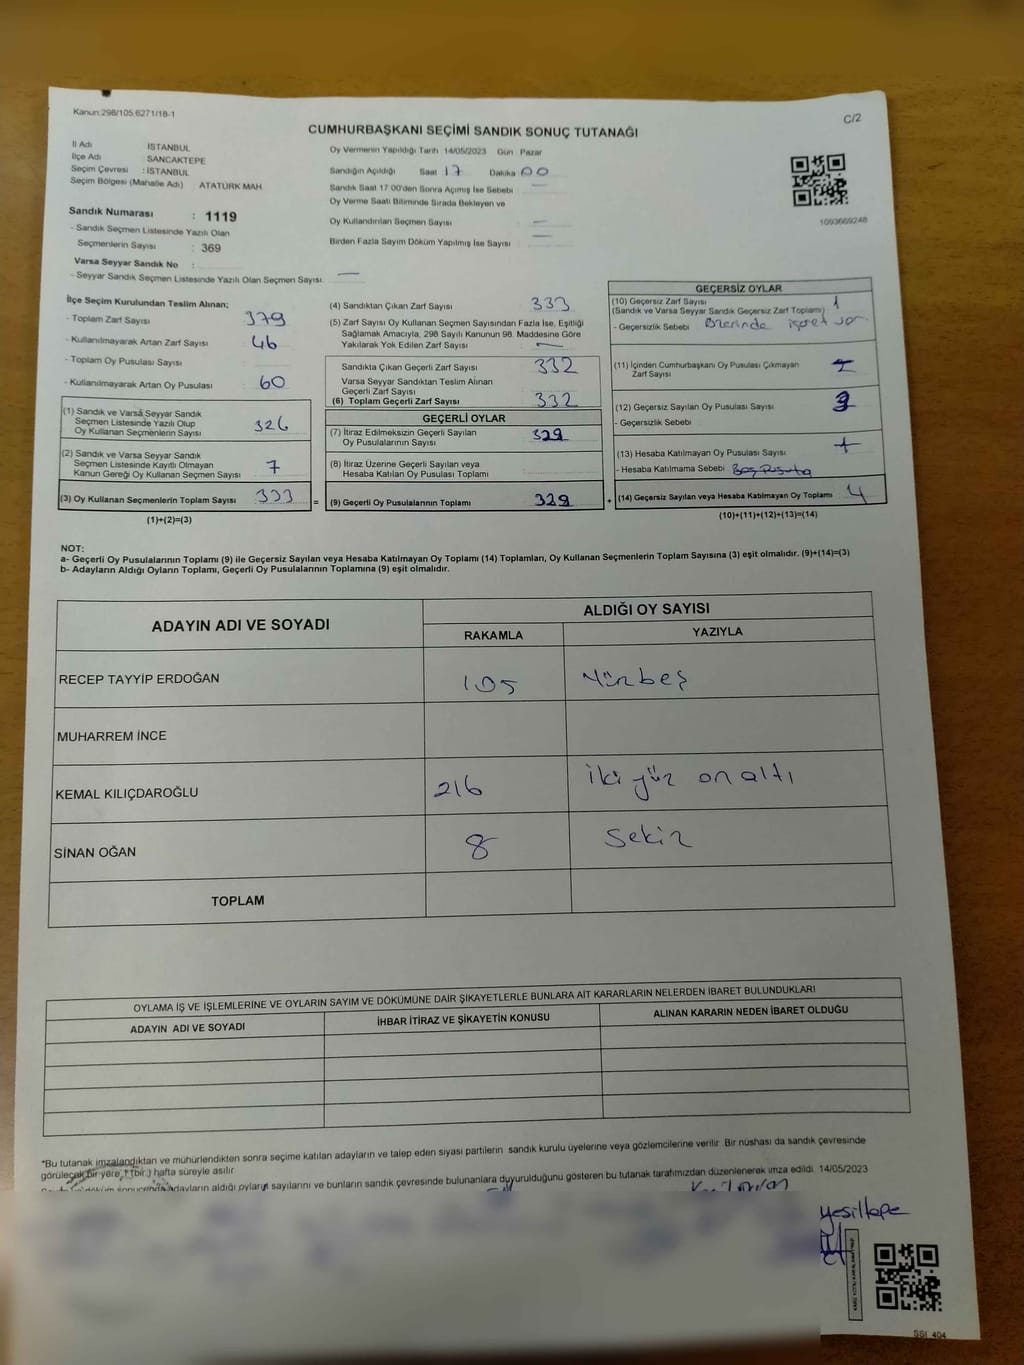 Kanun:298/105,6271/18-1
C/2
CUMHURBAŞKANI SEÇİMİ SANDIK SONUÇ TUTANAĞI
İl Adı İSTANBUL
İlçe Adı SANCAKTEPE
Seçim Çevresi : İSTANBUL
Seçim Bölgesi (Mahalle Adı) ATATÜRK MAH.
Sandık Numarası : 1119
- Sandık Seçmen Listesinde Yazılı Olan
Seçmenlerin Sayısı : 369
Varsa Seyyar Sandık No :
- Seyyar Sandık Seçmen Listesinde Yazılı Olan Seçmen Sayısı —
Oy Vermenin Yapıldığı Tarih 14/05/2023 Gün Pazar
Sandığın Açıldığı Saat 17 Dakika 00
Sandık Saat 17 00'den Sonra Açılmış İse Sebebi —
Oy Verme Saati Bitiminde Sırada Bekleyen ve
Oy Kullandırılan Seçmen Sayısı —
Birden Fazla Sayım Döküm Yapılmış İse Sayısı —
1093669248
İlçe Seçim Kurulundan Teslim Alınan;
- Toplam Zarf Sayısı 379
- Kullanılmayarak Artan Zarf Sayısı 46
- Toplam Oy Pusulası Sayısı
- Kullanılmayarak Artan Oy Pusulası 60
(1) Sandık ve Varsa Seyyar Sandık
Seçmen Listesinde Yazılı Olup
Oy Kullanan Seçmenlerin Sayısı 326
(2) Sandık ve Varsa Seyyar Sandık
Seçmen Listesinde Kayıtlı Olmayan
Kanun Gereği Oy Kullanan Seçmen Sayısı 7
(3) Oy Kullanan Seçmenlerin Toplam Sayısı 333 =
(1)+(2)=(3)
(4) Sandıktan Çıkan Zarf Sayısı 333
(5) Zarf Sayısı Oy Kullanan Seçmen Sayısından Fazla İse, Eşitliği
Sağlamak Amacıyla, 298 Sayılı Kanunun 98. Maddesine Göre
Yakılarak Yok Edilen Zarf Sayısı —
Sandıkta Çıkan Geçerli Zarf Sayısı 332
Varsa Seyyar Sandıktan Teslim Alınan
Geçerli Zarf Sayısı
(6) Toplam Geçerli Zarf Sayısı 332
GEÇERLİ OYLAR
(7) İtiraz Edilmeksizin Geçerli Sayılan
Oy Pusulalarının Sayısı 329
(8) İtiraz Üzerine Geçerli Sayılan veya
Hesaba Katılan Oy Pusulası Toplamı
(9) Geçerli Oy Pusulalarının Toplamı 329 +
GEÇERSİZ OYLAR
(10) Geçersiz Zarf Sayısı 1
(Sandık ve Varsa Seyyar Sandık Geçersiz Zarf Toplamı)
- Geçersizlik Sebebi Üzerinde işaret var
(11) İçinden Cumhurbaşkanı Oy Pusulası Çıkmayan
Zarf Sayısı
(12) Geçersiz Sayılan Oy Pusulası Sayısı 3
- Geçersizlik Sebebi
(13) Hesaba Katılmayan Oy Pusulası Sayısı
- Hesaba Katılmama Sebebi Boş Pusula
(14) Geçersiz Sayılan veya Hesaba Katılmayan Oy Toplamı 4
(10)+(11)+(12)+(13)=(14)
NOT:
a- Geçerli Oy Pusulalarının Toplamı (9) ile Geçersiz Sayılan veya Hesaba Katılmayan Oy Toplamı (14) Toplamları, Oy Kullanan Seçmenlerin Toplam Sayısına (3) eşit olmalıdır. (9)+(14)=(3)
b- Adayların Aldığı Oyların Toplamı, Geçerli Oy Pusulalarının Toplamına (9) eşit olmalıdır.
ADAYIN ADI VE SOYADI
ALDIĞI OY SAYISI
RAKAMLA YAZIYLA
RECEP TAYYİP ERDOĞAN 105 Yüzbeş
MUHARREM İNCE
KEMAL KILIÇDAROĞLU 216 iki yüz on altı
SİNAN OĞAN 8 Sekiz
TOPLAM
OYLAMA İŞ VE İŞLEMLERİNE VE OYLARIN SAYIM VE DÖKÜMÜNE DAİR ŞİKAYETLERLE BUNLARA AİT KARARLARIN NELERDEN İBARET BULUNDUKLARI
ADAYIN ADI VE SOYADI İHBAR İTİRAZ VE ŞİKAYETİN KONUSU ALINAN KARARIN NEDEN İBARET OLDUĞU
*Bu tutanak imzalandıktan ve mühürlendikten sonra seçime katılan adayların ve talep eden siyasi partilerin sandık kurulu üyelerine veya gözlemcilerine verilir. Bir nüshası da sandık çevresinde
görülecek bir yere, 1 (bir ) hafta süreyle asılır.
adayların aldığı oyların sayılarını ve bunların sandık çevresinde bulunanlara duyurulduğunu gösteren bu tutanak tarafımızdan düzenlenerek imza edildi. 14/05/2023
yesiltepe
SSI_404